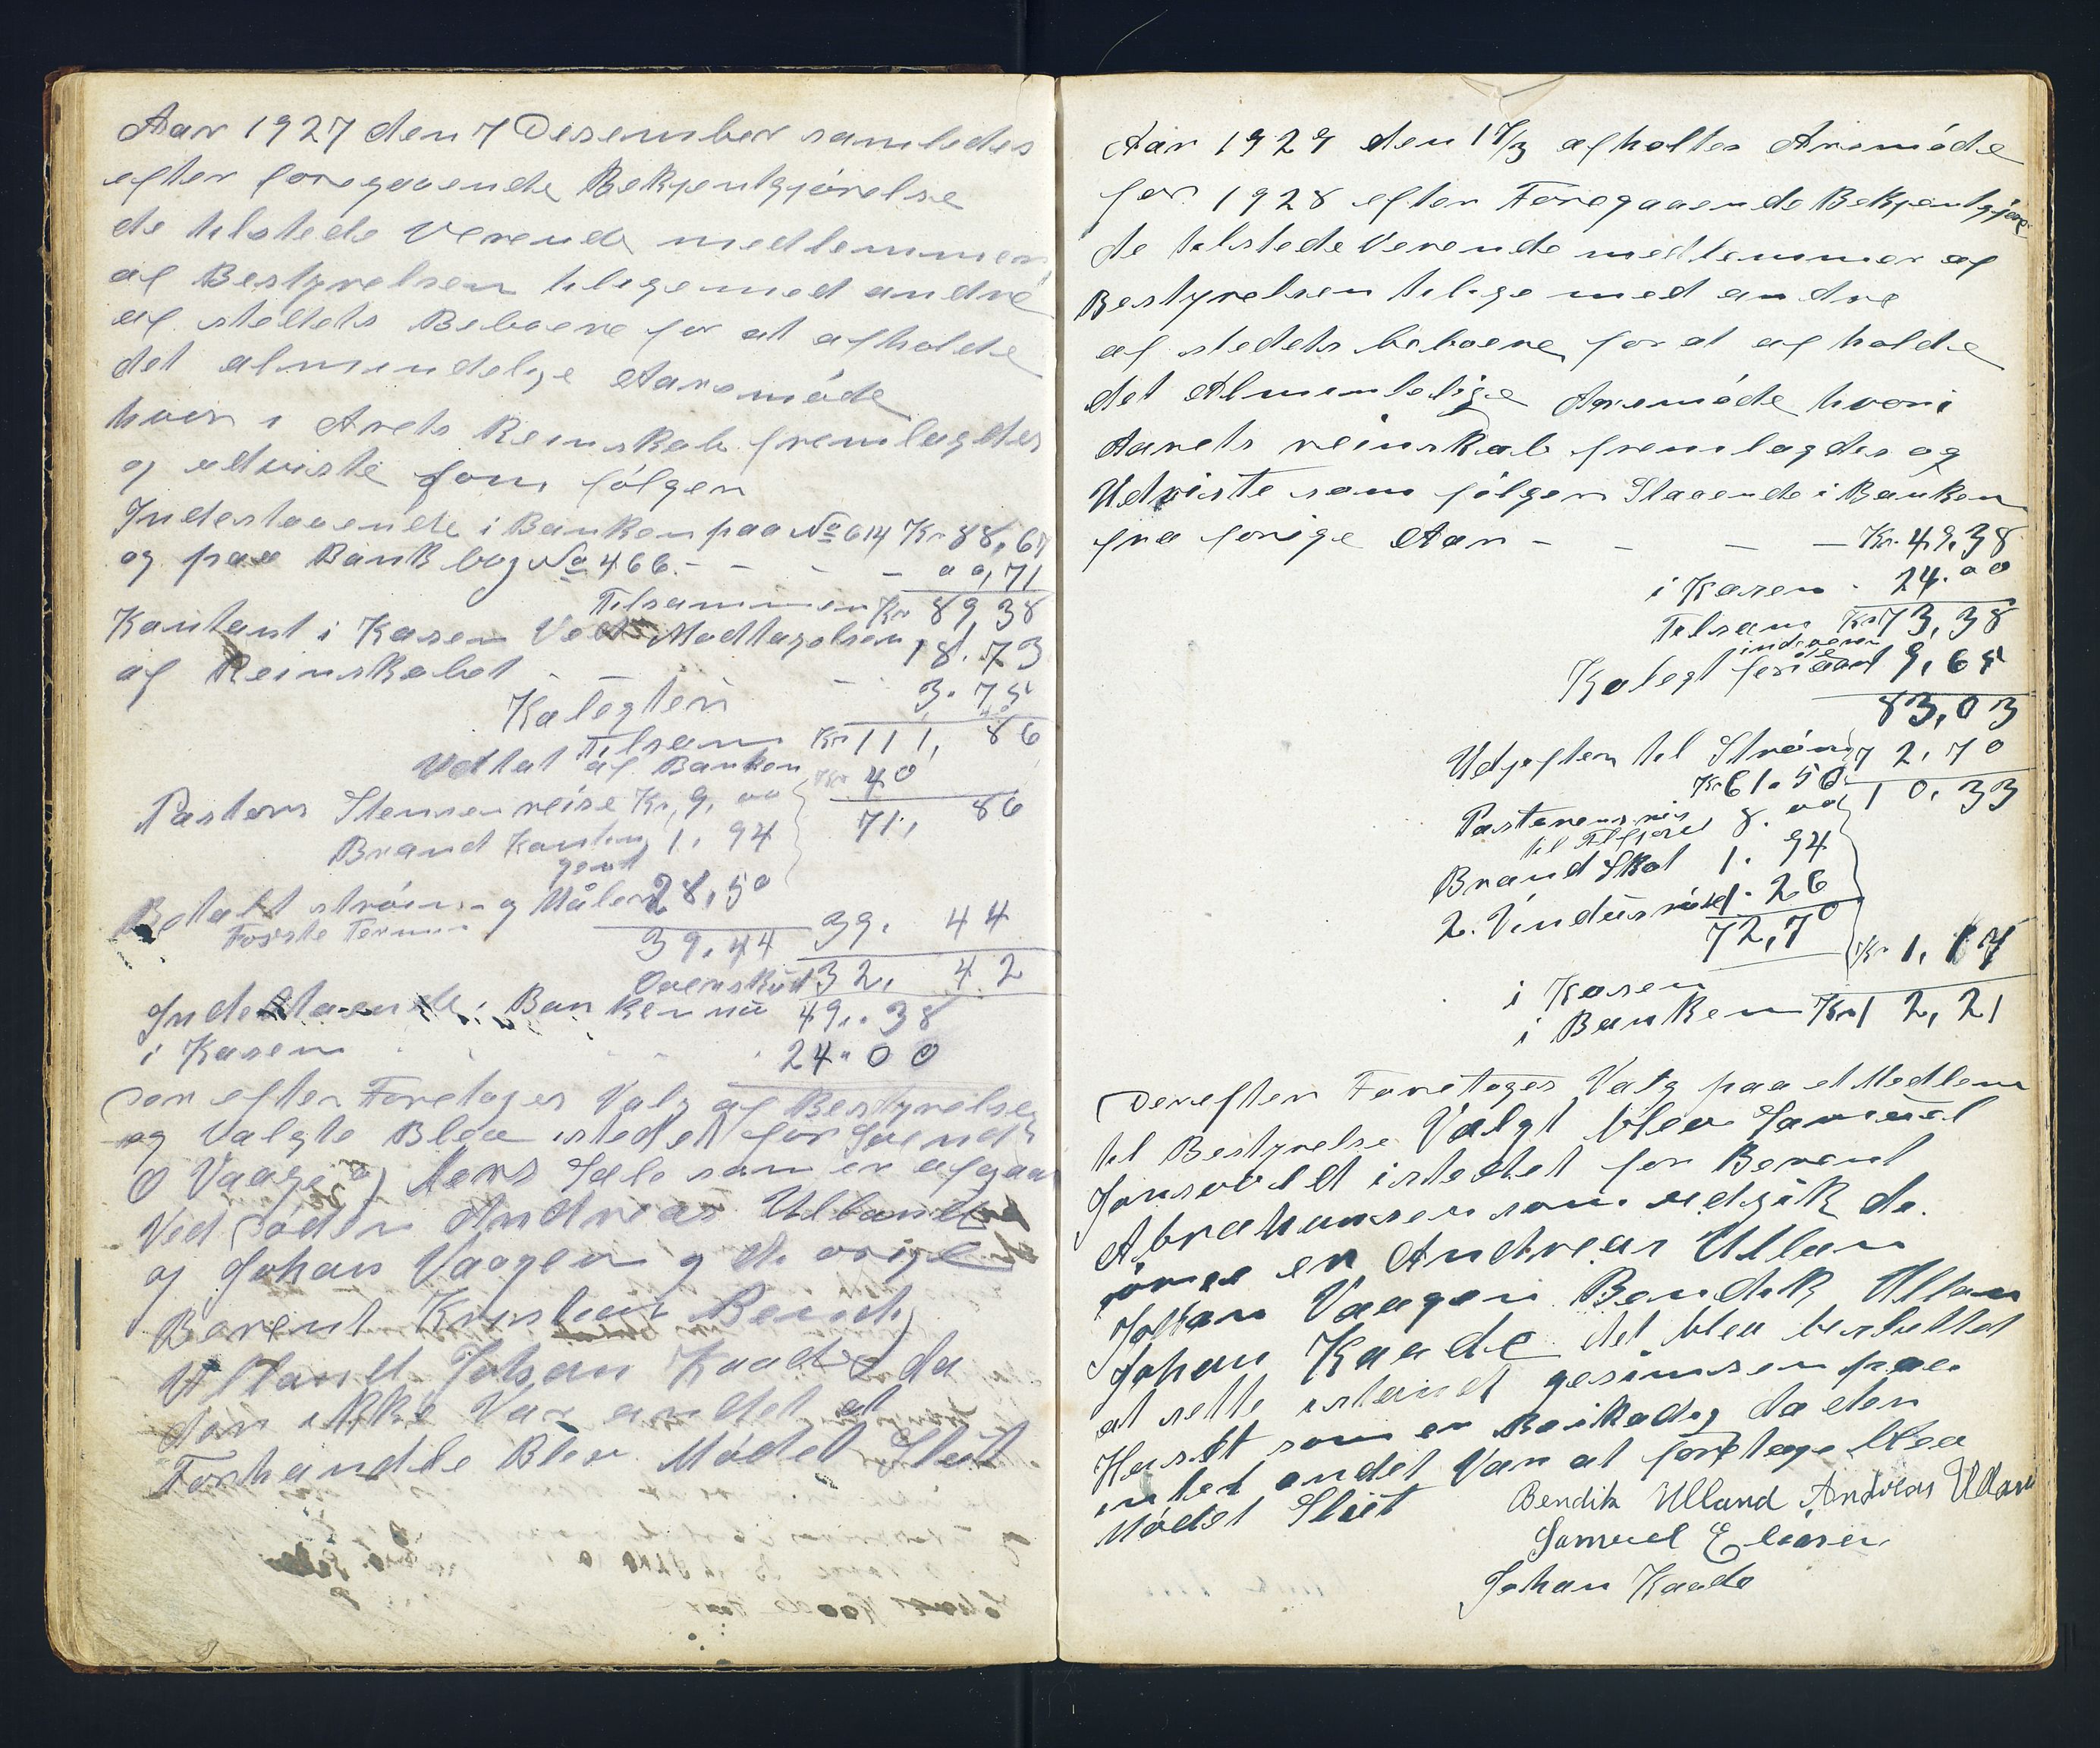 Aar 1927 den 7 Desember samledes
efter foregaaende Bekjentgjörelse
de tilstede Verende medlemmer
af Bestyrelsen tiligemed andre
af stedets Beboere for at afholde
det almindelige Aarsmöde
hvor i Arets Reinskab fremlagdes
og udviste som fölger
Indestaaende i Banken paa No 614 Kr 88,67
og paa Bank bog No 466. - - - - 00,71
Tilsammen Kr 89 38
Kontant i Kasen Ved Modtagelsen 18.73
af Reinskabet - -
Kalegten 3.75
Tilsam Kr 111, 86
Udtat af Banken Kr 40
71, 86
Pastors Stensen reise Kr, 9, 00
Brand Kontin 1. 94
gent
Betalt ström og Måler 28,50
Förste Termin
39.44 39. 44
Overskud 32, 42
Indestaaende i Banken nu 49,.38
i Kasen . . . . 24.00
Der efter Foretoges Valg af Bestyrelse
og Valgte Blev istedet for Svend
O Vaage og Mons Sele som er afgaa
Ved Döden Andreas Ulland
og Johan Vaagen g de örige
Berent Kristian Bendig
Ulland Johan Kaade da
der ikke Var andet at
Forhandle Blev Mödet Slut
Aar 1929 den 17/3 afholtes Arsmöde
for 1928 efter Foregaaende Bekjentgjöre
de tilstede Verende medlemmer af
Bestyrelsen tilige med andre
af stedets beboere for at afholde
det Almindelige Arsmöde hvori
Aarets reinskab fremlagdes og
Udviste som fölger Staaende i Banken
fra forige Aar - - - - Kr. 49.38
i Kasen . 24.00
Tilsam Kr 73,38
Kalegt 9,65
83,03
Udgifter til Ström 72.70
Kr 61.50
10.33
Pastorens reis 8.00
Brand Skat 1. 94
2. Vindusrúd 1.26
72,70
Kr 1,17
i Kasen
i Banken Kr 12,21
Derefter Foretoges Valg paa et Medlem
til Bestyrelse Valgt blev Samuel
Jonsvold istedet for Berent
Abrahamsen som udgik de
övrige er Andreas Ullan
Johan Vaagen Bendik Ullan
Johan Kaade det blev besluttet
at sette istand gesimsen paa
Huset som er Beskadig da der
intet andet Var at foretage blev
Mödet Slut
Bendik Ulland Andreas Ullan
Samuel Eliasen
Johan Kaade